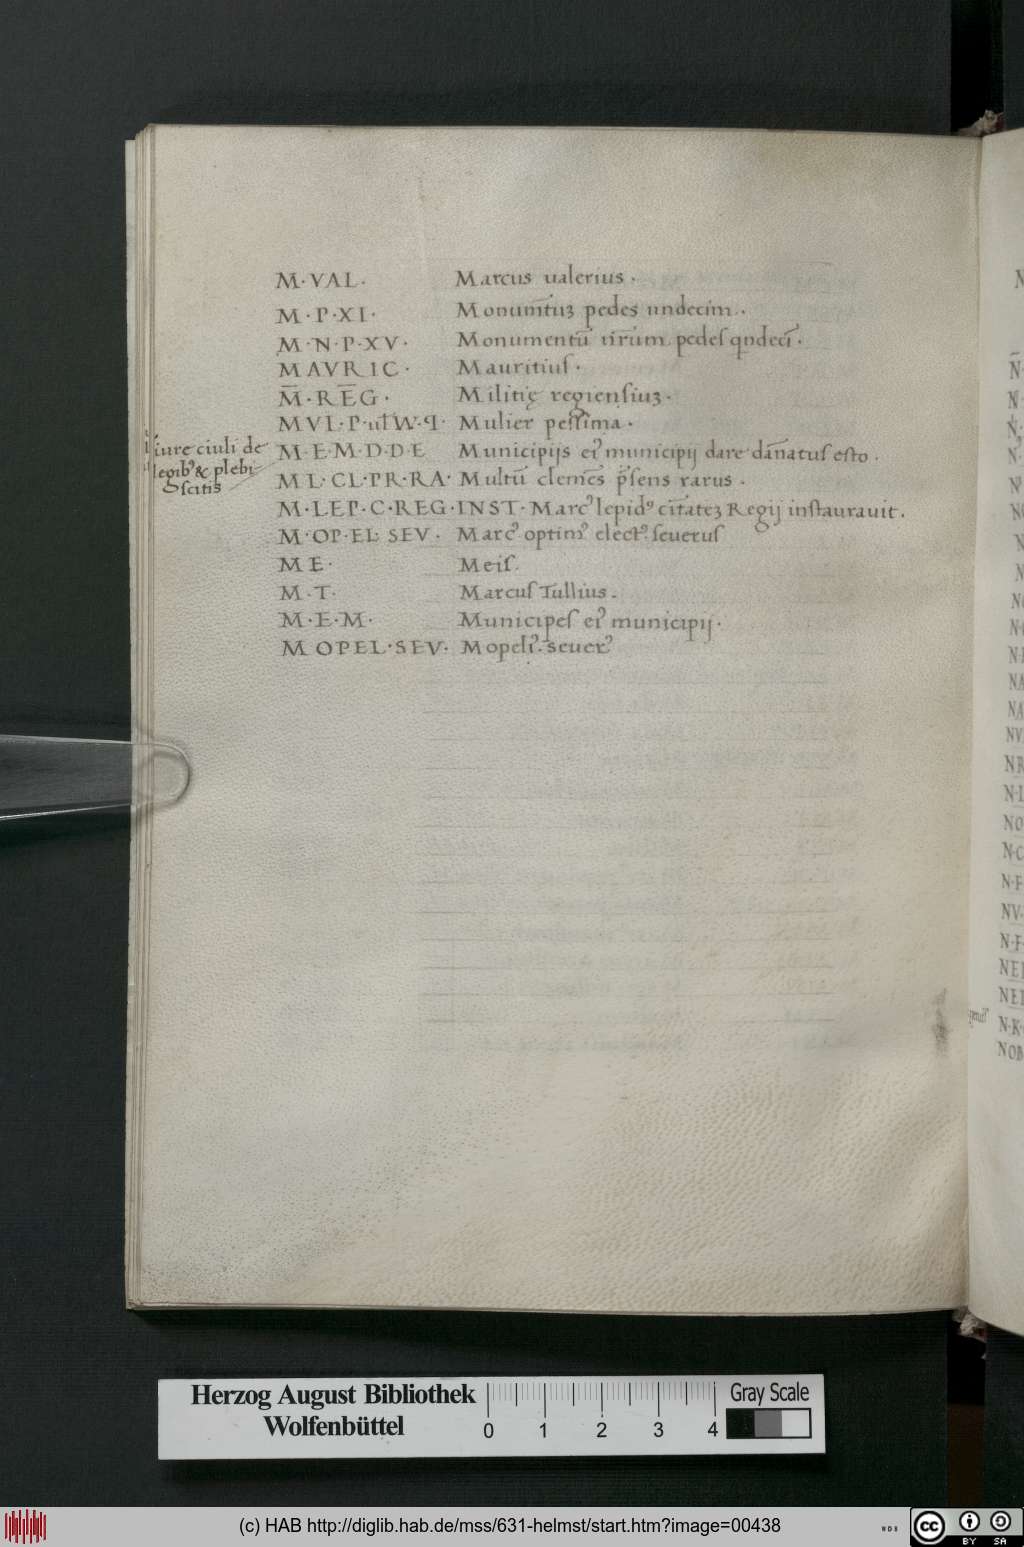 M·VAL· Marcus ualerius·
M·P·XI· Monum̅tuꝫ pedes undecim·
M·N·P·XV· Monumentū nr̅um pedeſ qndecī·
MAVRIC· Mauritiuſ·
M̅·RE̅G· Militię regienſiuꝫ·
MVL·P·ul W·ꟼ· Mulier peſſima·
M·E·M·D·D·E Municipijs eiꝰ municipij dare dān̅atuſ eſto·
iure ciuli de
legibꝰ & plebi
scitis
M L·CL·PR·RA· Multū clemēs p̄ſens rarus·
M·LEP·C·REG·INST· Marcꝰ lepidꝰ ciūtateꝫ Regij inſtaurauit·
M·OP·EL·SEV· Marcꝰ optimꝰ electꝰ ſeueruſ
M E· Meiſ
M·T· Marcuſ Tullius·
M·E·M· Municipeſ eiꝰ municipij·
M OPEL·SEV· Mopeliꝰ·seuerꝰ
N
N̅·
N·
N·
N
N
N
N·
NA
NA
NV
NR
N·L
NO
N·C
N·F
NV·
N·F·
NEP
NEP
N·K·
NOB
Herzog August Bibliothek
Wolfenbüttel
0 1 2 3 4
Gray Scale
(c) HAB http://diglib.hab.de/mss/631-helmst/start.htm?image=00438
WDB
cc BY SA